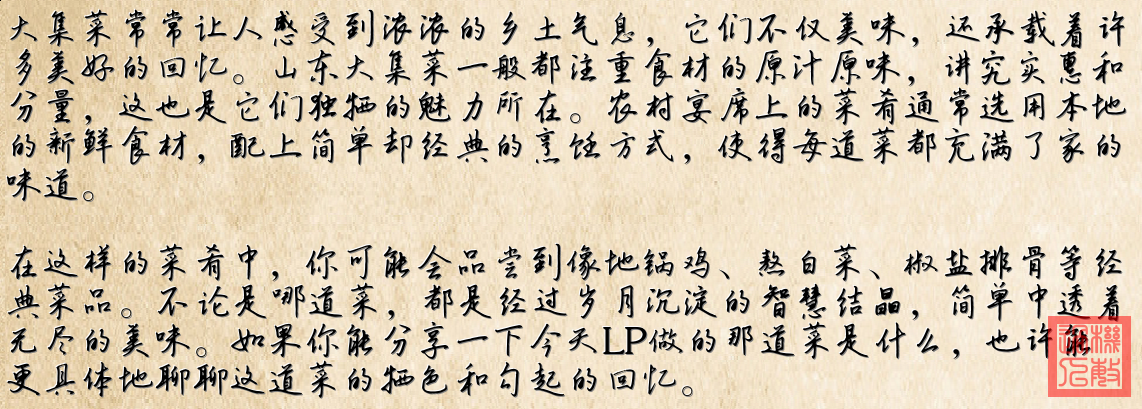 大集菜常常让人感受到浓浓的乡土气息，它们不仅美味，还承载着许
多美好的回忆。山东大集菜一般都注重食材的原汁原味，讲究实惠和
分量，这也是它们独特的魅力所在。农村宴席上的菜肴通常选用本地
的新鲜食材，配上简单却经典的烹饪方式，使得每道菜都充满了家的
味道。
在这样的菜肴中，你可能会品尝到像地锅鸡、熬白菜、椒盐排骨等经
典菜品。不论是哪道菜，都是经过岁月沉淀的智慧结晶，简单中透着
无尽的美味。如果你能分享一下今天LP做的那道菜是什么，也许能
更具体地聊聊这道菜的特色和勾起的回忆。